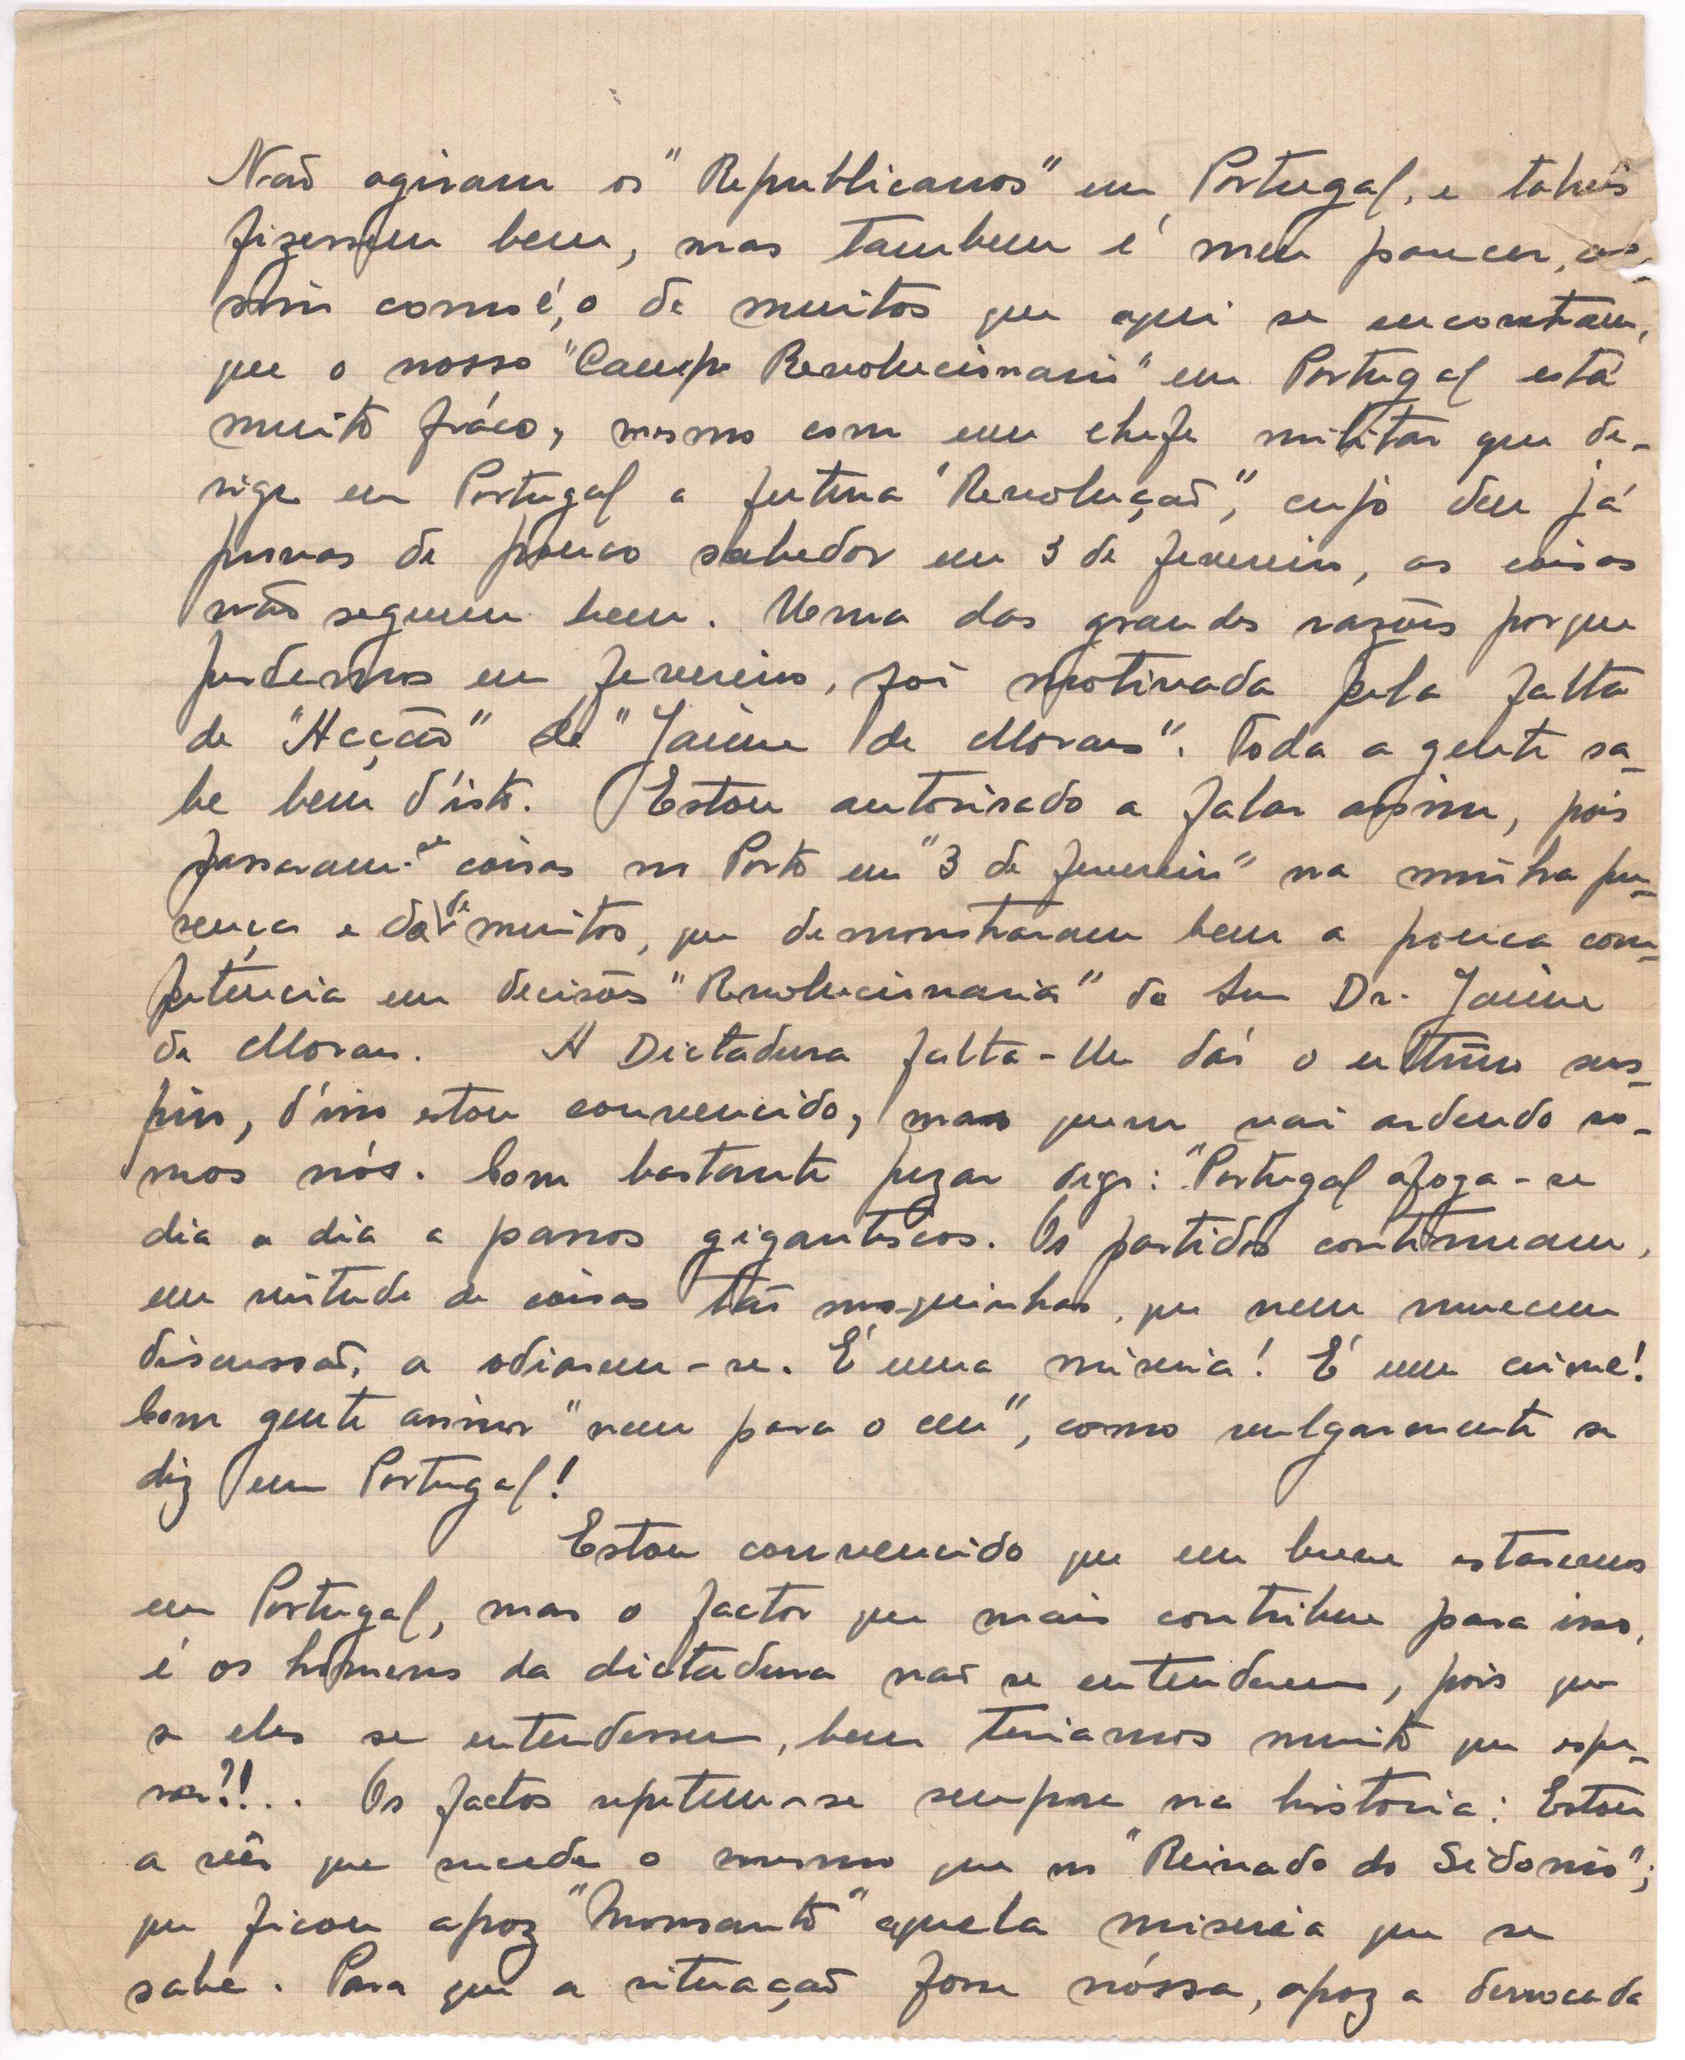 Não agiram os "Republicanos" em Portugal, e talvês
fizessem bem, mas tambem é meu parecer, as-
sim como é, o de muitos que aqui se encontram,
que o nosso "Campo Revolucionario" em Portugal está
muito fráco, mesmo com um chefe militar que de-
rige em Portugal a futura "Revolução", cujo deu já
provas de pouco sabedor em 3 de fevereiro, as coisas
não seguem bem. Uma das grandes razões porque
perdemos em fevereiro, foi motivada pela falta
de "Acção" de "Jaime de Moraes". Toda a gente sa-
be bem d'isto. Estou autorisado a falar assim, pois
passaram-se coisas no Porto em "3 de fevereiro" na minha pre-
sença e da de muitos, que demonstraram bem a pouca com-
petência em decisões "Revolucionaria" do Snr Dr. Jaime
de Moraes. A Dictadura falta-lhe dár o ultimo sus-
piro, d'isso estou convencido, mas quem vai ardendo so-
mos nós. Com bastante pezar digo: "Portugal afoga-se
dia a dia a passos gigantescos. Os partidos continuam,
em virtude de coisas tão mesquinhas, que nem merecem
discussão, a odiarem-se. É uma miseria! É um crime!
Com gente assim "nem para o ceu", como vulgarmente se
diz em Portugal!
Estou convencido que em breve estaremos
em Portugal, mas o factor que mais contribue para isso,
é os homens da dictadura não se entenderem, pois que
se eles se entendessem, bem teriamos muito que espe-
rar?!.. Os factos repetem-se sempre na historia: Estou
a vêr que sucede o mesmo que no "Reinado do Sidonio";
que ficou apoz "Monsanto" aquela miseria que se
sabe. Para que a situação fosse nóssa, apoz a derrocada